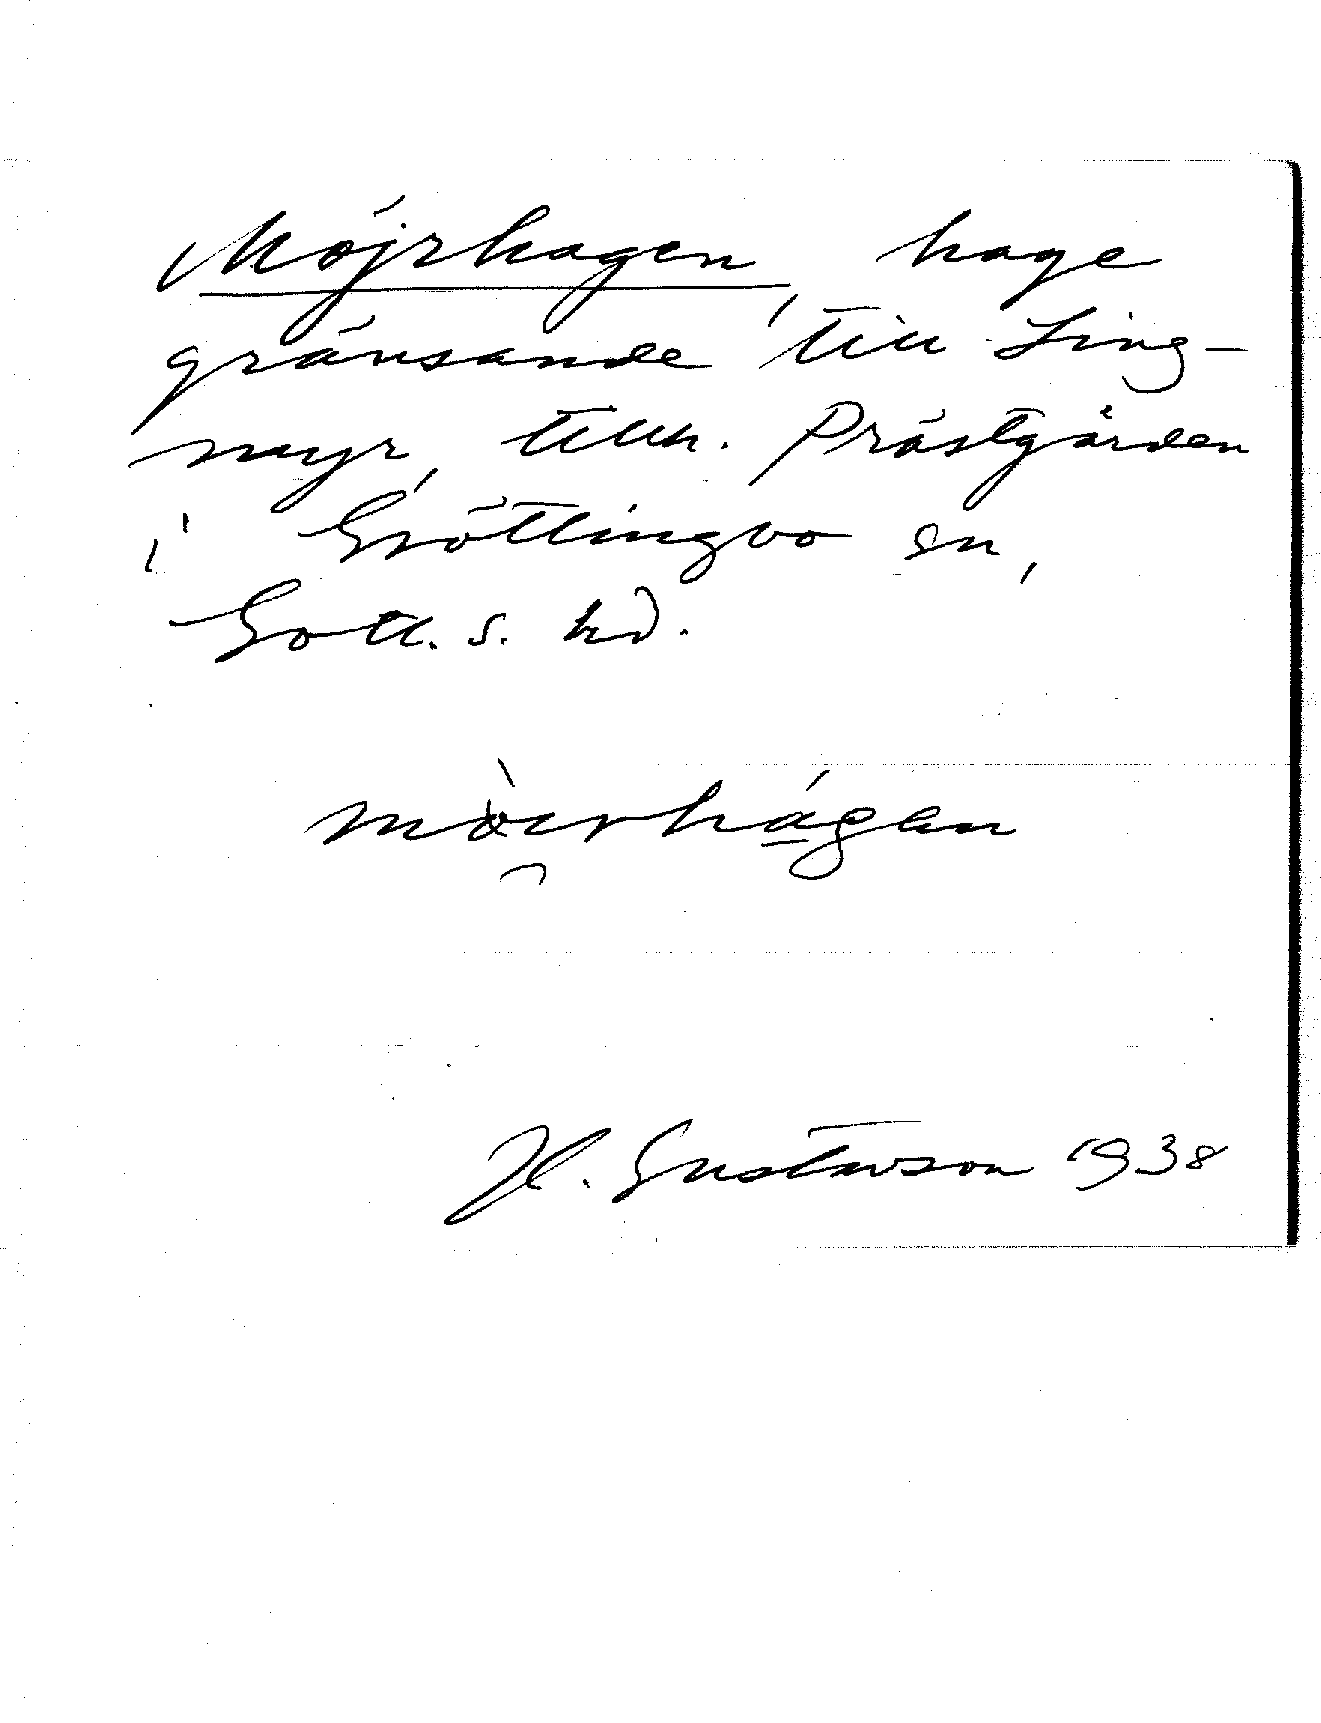 Möjrhagen, hage
gränsande till Ling-
myr, tillh. Prästgården
i Gröttlingbo sn,
Gotl. s. hd.
H. Gustavson 1938